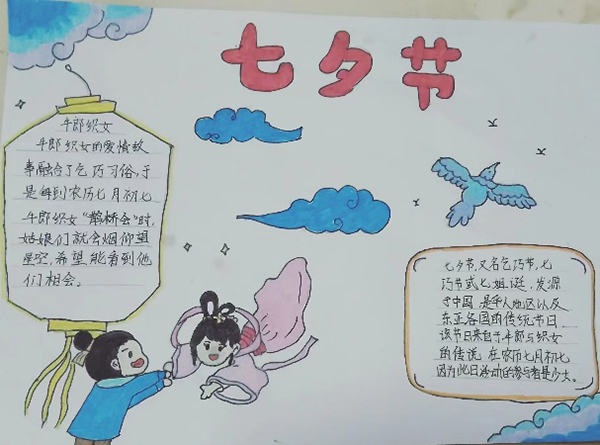 七夕节
牛郎织女
牛郎织女的爱情故
事融合了乞巧习俗,于
是每到农历七月初七
牛郎织女“鹊桥会”时,
姑娘们就会烟仰望
星空,希望能看到他
们相会。
七夕节,又名乞巧节,七
巧节或七姐诞,发源
于中国 是华人地区以及
东亚各国的传统节日
该节日来自于牛郎与织女
的传说 在农历七月初七
因为此日活动的参与者是少女。